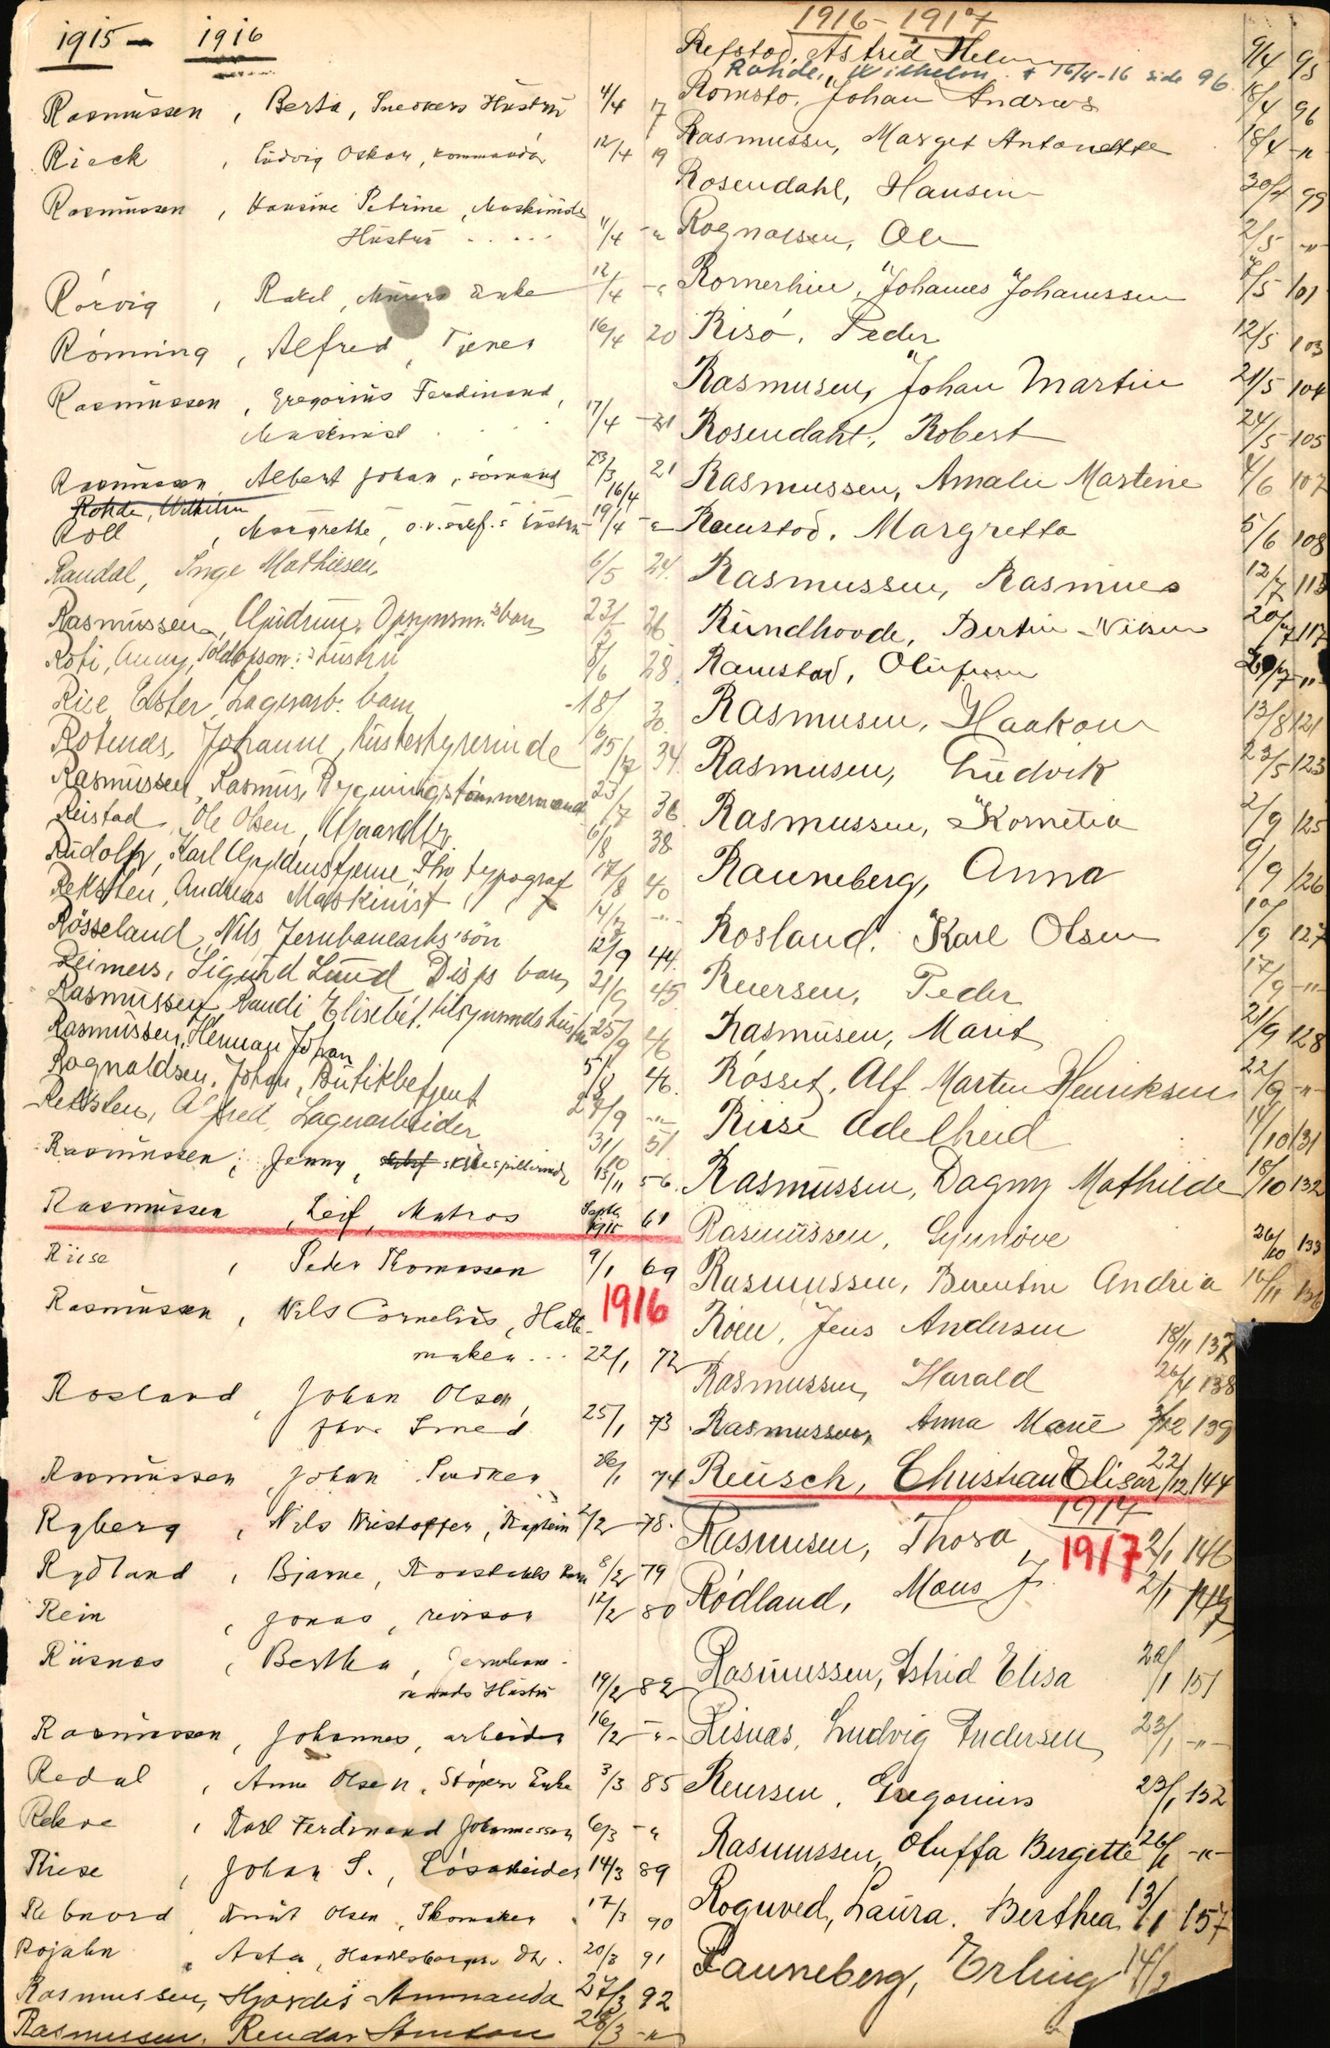 1915 - 1916
Rasmussen, Berta, Snedkers Hustru 4/4 17
Rieck, Ludvig Oskar, kommandör 12/4 19
Rasmussen, Hansine Petrine, Maskinists
Hustru 11/4 -"
Rörvig, Rakel, Murers Enke 12/4 -"
Rönning, Alfred, Tjener 16/4 20
Rasmussen, Gregorius Ferdinand,
Maskinist 17/4 21
Rasmussen, Albert Johan, sömand 23/3 21
Rohde, Wilhelm 16/4
Roll, Margrethe, 19/4 -"
Randal, Inge Mathiesen 6/5 24
Rasmussen, Gudrun, Opsynsm.s barn 23/5 26
Roti, Anny, Toldbetjsm.s hustru 8/6 28
Rice Ester, Lagerarb. barn 18/6 30
Johanne, husbestyrerinde 15/7 34
Rasmussen, Rasmus, Bygningstømmermand 23/7 36
Reistad, Ole Olsen, Gaardbr 6/8 38
Rudolf, Karl Gyldenstjerne, Fhv typograf 17/8 40
Reksten, Andreas Maskinist 14/8 -"-
Rösseland, Nils Jernbanearb s sön 12/9 44
Reimers, Sigurd Lund Disp barn 21/9 45
Rasmussen Randi Elisebet, tilsynsmds hustru 25/9 46
Rasmussen, Herman Johan 5/8 46
Rognaldsen, Johan, Butikbetjent 27/9 -"-
Reksten, Alfred, Lagerarbeider 31/10 51
Rasmussen, Jenny, skuespillerinde 13/11 56
Rasmussen, Leif, Matros Septb. 1915 61
Riise, Peder Thomassen 9/1 69
1916
Rasmussen, Nils Cornelius, Hatte-
maker 22/1 72
Rosland, Johan Olsen,
fhv. Smed 25/1 73
Rasmussen, Johan 26/1 74
Ryberg, Nils Kristoffer, Kaptein 2/2 78
Rydland, Bjarne, Konstabels barn 8/2 79
Rein, Jonas, revisor 12/2 80
Riisnæs, Bertha, Jernbane-
mands Hustru 19/2 82
Rasmussen, Johannes, arbeider 16/2 -"-
Redal, Anne Olsen, Støpers Enke 3/3 85
Karl Ferdinand Johannessen 6/3 -"
Riese, Johan S., Løsarbeider 14/3 89
Rebnord, Knut Olsen, Skomaker 17/3 90
Rojahn, Asta, Handelsborger. Dtr. 20/3 91
Rasmussen, Hjørdis Ammanda 27/3 92
Rasmussen, Reidar 28/3 -"-
1916 - 1917
Refstod, Astrid Helene 9/4 95
Rohde, Wilhelm. † 16/4-16 side 96
Romsto, Johan Andreas 18/4 96
Rasmussen, Marget Antonette 18/4 -"-
Rosendahl, Hansine 30/4 99
Rognalsen, Ole 2/5 -"-
Johannes Johanssen 7/5 101
Risö, Peder 12/5 103
Rasmusen, Johan Martin 21/5 104
Rosendahl, Robert 24/5 105
Rasmussen, Amalie Martine 4/6 107
Ramstod, Margretta 5/6 108
Rasmussen, Rasmines 12/7 113
Rundhovde, Bertin Nilsen 20/7 117
Ramstad, Olufine -"-
Rasmusen, Haakon 13/8 121
Rasmusen, Ludvik 23/5 123
Rasmussen, Kornetia 2/9 125
Rauneberg, Anna 9/9 126
Rosland, Karl Olsen 10/9 127
Reiersen, Peder 17/9 -"-
Rasmusen, Marit 21/9 128
Rösset, Alf Martin Henriksen 22/9 -"-
Riise Adelheid 14/10 131
Rasmussen, Dagny Mathilde 18/10 132
Rasmussen, Synnöve 26/10 133
Rasmussen, Berentine Andria 16/11 136
Roen, Jens Andersen 18/11 137
Rasmussen, Harald 26/11 138
Rasmussen, Anna Marie 3/12 139
Reusch, Christian Elisar 22/12 144
1917
1917
Rasmusen, Thora, 2/1 146
Rödland, Mons J. 2/1 147
Rasmussen, Astrid Elisa 20/1 151
Risnæs, Ludvig Andersen 23/1 -"-
Reiersen, Gregorius 23/1 152
Rasmussen, Oluffa Bergitte 26/1 -"-
Rognved, Laura. Berthea 13/1 157
Rauneberg, Erling 14/2